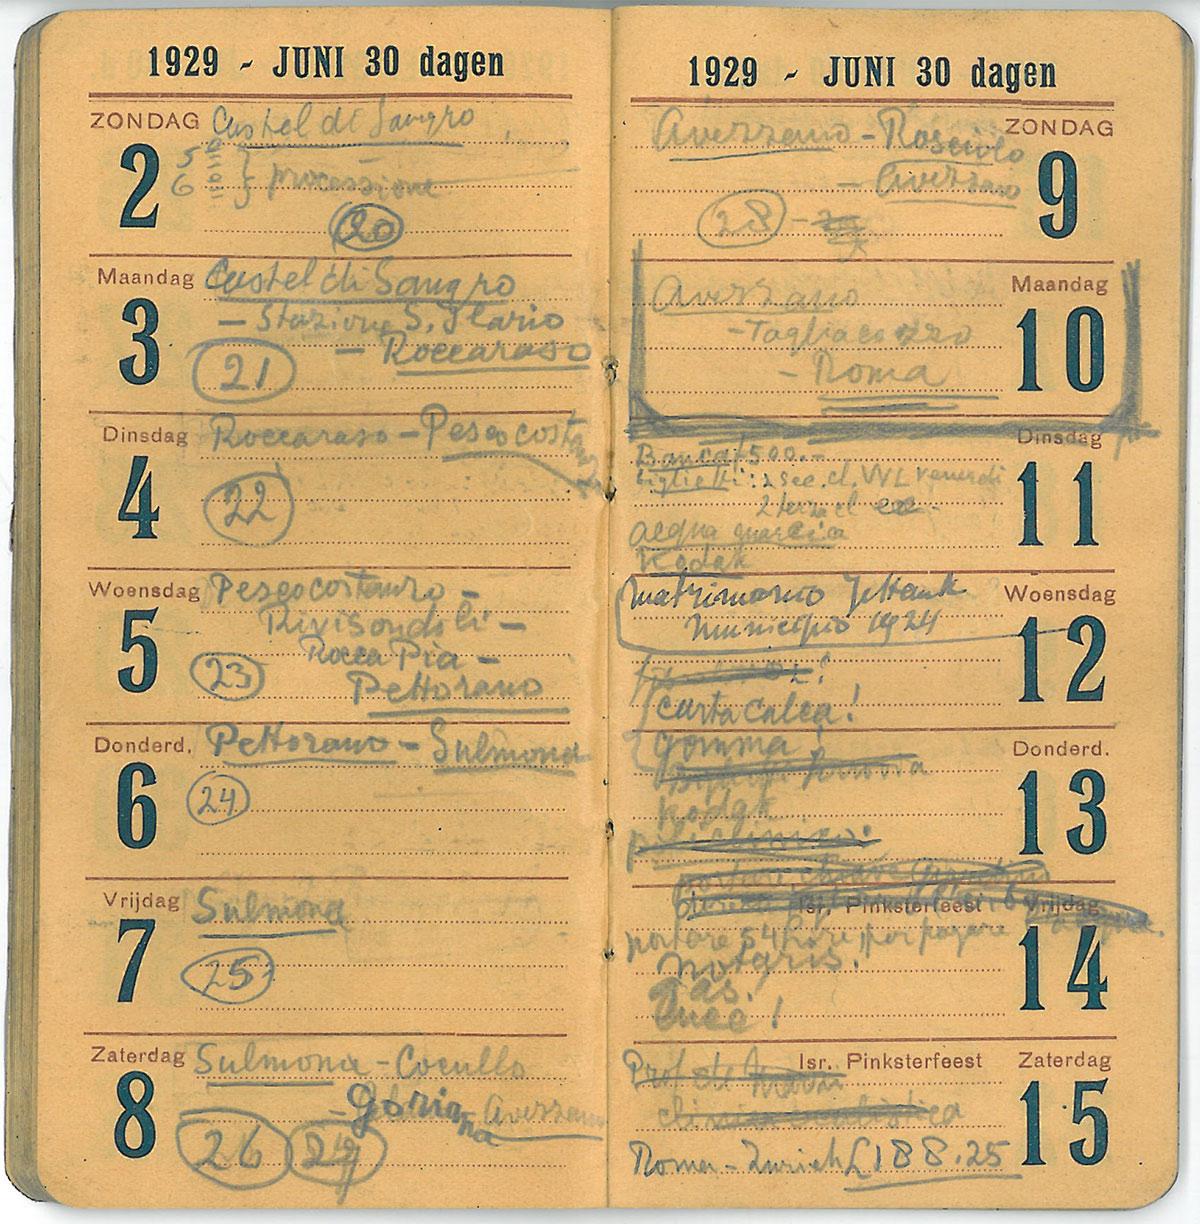 1929 - JUNI 30 dagen
ZONDAG Castel di Sangro
2
5
6 } processione
20
Maandag Castel di Sangro
3 — Stazione S. Ilario
— Roccaraso
21
Dinsdag Roccaraso — Pescocostanzo
4
22
Woensdag Pescocostanzo —
5 Rivisondoli —
Rocca Pia —
23 Pettorano
Donderd. Pettorano — Sulmona
6
24
Vrijdag Sulmona
7
25
Zaterdag Sulmona — Cocullo
8 — Goriana Avezzano
26 27
1929 - JUNI 30 dagen
Avezzano — Rosciolo ZONDAG
— Avezzano 9
28 -
Avezzano Maandag
— Tagliacozzo 10
— Roma
Dinsdag
Banca 1500.—
biglietti: 2 sec. cl. VVL venerdi 11
2 terza cl
acqua
Kodak
matrimonio Jetta Woensdag
municipio 1924 12
carta calca!
gomma! Donderd.
13
Kodak
policlinico:
portare chiave
Isr. Pinksterfeest Vrijdag
portare 54 lire per pagare 14
notaris!
gas!
luce!
Prof. de Isr. Pinksterfeest Zaterdag
clinica 15
Roma — Zurich £188.25